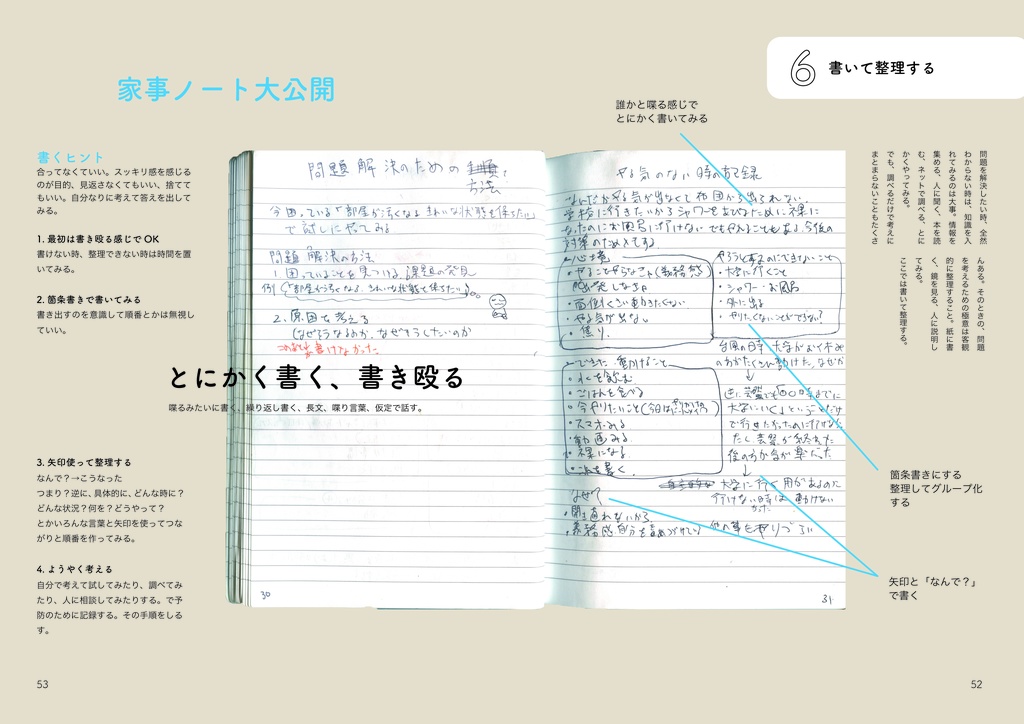 6
書いて整理する
問題を解決したい時、全然
わからない時は、知識を入
れてみるのは大事。情報を
集める、人に聞く、本を読
む、ネットで調べる、とに
かくやってみる。
でも、調べるだけで考えに
まとまらないこともたくさ
んある。そのときの、問題
を考えるための極意は客観
的に整理すること。紙に書
く、鏡を見る、人に説明し
てみる。
ここでは書いて整理する。
誰かと喋る感じで
とにかく書いてみる
家事ノート大公開
書くヒント
合ってなくていい。スッキリ感を感じる
のが目的、見返さなくてもいい、捨てて
もいい。自分なりに考えて答えを出して
みる。
1. 最初は書き殴る感じで OK
書けない時、整理できない時は時間を置
いてみる。
2. 箇条書きで書いてみる
書き出すのを意識して順番とかは無視し
ていい。
とにかく書く、書き殴る
喋るみたいに書く、繰り返し書く、長文、喋り言葉、仮定で話す。
3. 矢印使って整理する
なんで？→こうなった
つまり？逆に、具体的に、どんな時に？
どんな状況？何を？どうやって？
とかいろんな言葉と矢印を使ってつな
がりと順番を作ってみる。
4. ようやく考える
自分で考えて試してみたり、調べてみ
たり、人に相談してみたりする。で予
防のために記録する。その手順をしる
す。
問題解決のための
方法
今困っている「部屋が汚くなる きれいな状態を保ちたい」
で試しにやってみる
問題解決の方法
1. 困っていることを見つける。課題の発見
例「部屋が汚くなる。きれいな状態を保ちたい」
2. 原因を考える
なぜそうなるのか、なぜそうしたいのか
書けなかった
30
やる気のない時の記録
なんだかやる気が出なくて布団から出られない。
学校に行きたいからシャワーをあびるために裸に
なったのにお風呂に行けない
対策のためメモする。
心境
・面倒くさい動きたくない
・やる気が出ない
・焦り
やろうと思うのにできないこと
・大学に行くこと
・シャワー・お風呂
・外に出る
・やりたくないことができない?
できた 動けること
・水を飲む
・ごはんを食べる
・今やりたいこと
・スマホみる
・動画みる
・裸になる
・これを書く
台風の日時 大学がお休み
大学に行く用があるのに
行けない時は動けない
なぜ?
31
箇条書きにする
整理してグループ化
する
矢印と「なんで？」
で書く
53
52